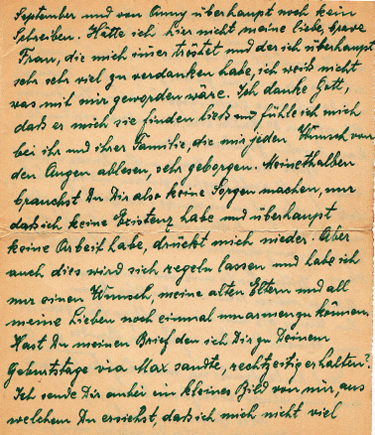 September und von Anny überhaupt noch kein
Schreiben. Hätte ich hier nicht meine liebe, brave
Frau, die mich immer tröstet und der ich überhaupt
sehr sehr viel zu verdanken habe, ich weiß nicht
was mit mir geworden wäre. Ich danke Gott,
daß er mich sie finden ließ und fühle ich mich
bei ihr und ihrer Familie, die mir jeden Wunsch von
den Augen ablesen, sehr geborgen. Meinethalben
brauchst Du Dir also keine Sorgen machen, nur
daß ich keine Existenz habe und überhaupt
keine Arbeit habe, drückt mich nieder. Aber
auch dies wird sich regeln lassen und habe ich
nur einen Wunsch, meine alten Eltern und all
meine Lieben noch einmal umarmen zu können.
Hast Du meinen Brief den ich Dir zu Deinem
Geburtstage via Max sandte, rechtzeitig erhalten?
Ich sende Dir anbei ein kleines Bild von mir, aus
welchem Du ersiehst, daß ich mich nicht viel